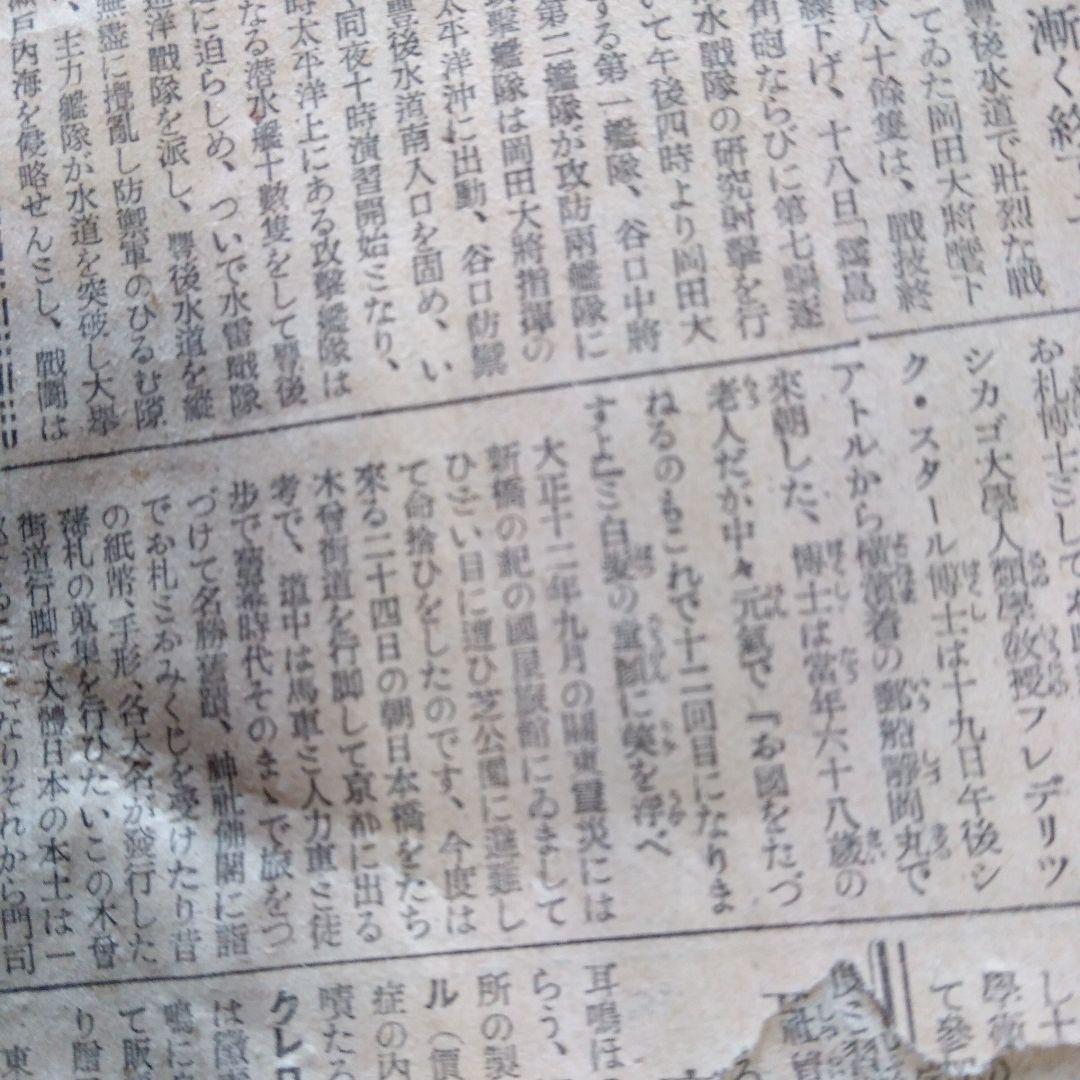 漸く終
豊後水道で壯烈な戰
てゐた岡田大將麾下
八十餘隻は、戰技終
下げ、十八日「霧島」
砲ならびに第七驅逐
水戰隊の研究射擊を行
いて午後四時より岡田大
する第一艦隊、谷口中將
第二艦隊が攻防兩艦隊に
擊艦隊は岡田大將指揮の
太平洋沖に出動、谷口防禦
豊後水道南入口を固め、い
同夜十時演習開始ミなり、
時太平洋上にある攻擊艦隊は
なる潜水艦十數隻をして豊後
に迫らしめ、ついで水雷戰隊
洋戰隊を派し、豊後水道を縱
無盡に攪亂し防禦軍のひるむ隙
主力艦隊が水道を突破し大擧
戸內海を侵略せんミし、戰鬪は
お札博士ミして
シカゴ大學人類學敎授フレデリツ
ク・スタール博士は十九日午後シ
アトルから橫濱着の郵船靜岡丸で
來朝した、博士は當年六十八歲の
老人だが中々元氣で『お國をたづ
ねるのもこれで十二回目になりま
すよ』ミ白髮の童顔に笑を浮べ
大正十二年九月の關東震災には
新橋の紀の國屋旅館にゐまして
ひごい目に遭ひ芝公園に避難し
て命拾ひをしたのです、今度は
來る二十四日の朝日本橋をたち
木曾街道を行脚して京都に出る
考で、道中は馬車ミ人力車ミ徒
步で舊幕時代そのまゝで旅をつ
づけて名勝舊蹟、神社佛閣に詣
でお札ミおみくじを受けたり昔
の紙幣、手形、各大名が發行した
藩札の蒐集を行ひたい、この木曾
街道行脚で大體日本の本土は一
それから門司
し十
學術の
て參
耳鳴は
らう、
所の製
ル（價
症の內
嘖たる
クレ
は徵
鳴に
て販
り贈
東